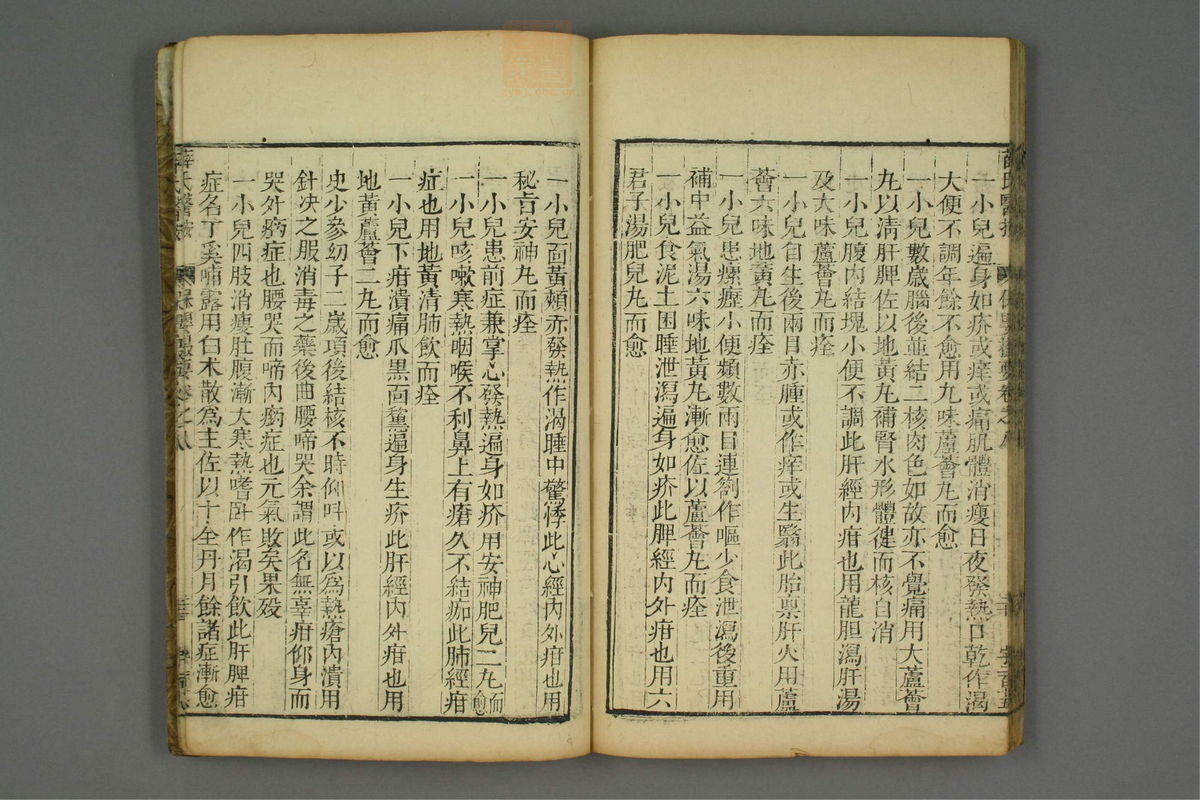 一小兒遍身如疥或痒或痛肌體消瘦日夜發熱口乾作渴
大便不調年餘不愈用九味蘆薈丸而愈
一小兒數歲腦後並結二核肉色如故亦不覺痛用大蘆薈
丸以清肝脾佐以地黃丸補腎水形體健而核自消
一小兒腹內結塊小便不調此肝經內疳也用龍胆瀉肝湯
及大味蘆薈丸而痊
一小兒自生後兩目赤腫或作痒或生翳此胎稟肝火用蘆
薈六味地黃丸而痊
一小兒患瘰癧小便頻數兩目連劄作嘔少食泄瀉後重用
補中益氣湯六味地黃丸漸愈佐以蘆薈丸而痊
一小兒食泥土困睡泄瀉遍身如疥此脾經內外疳也用六
君子湯肥兒丸而愈
一小兒面黃頰赤發熱作渴睡中驚悸此心經內外疳也用
秘旨安神丸而痊
一小兒患前症兼掌心發熱遍身如疥用安神肥兒二丸而愈
一小兒咳嗽寒熱咽喉不利鼻上有瘡久不結痂此肺經疳
症也用地黃清肺飲而痊
一小兒下疳潰痛爪黑面黧遍身生疥此肝經內外疳也用
地黃蘆薈二丸而愈
史少參幼子二歲項後結核不時仰叫或以爲熱瘡內潰用
針决之服消毒之藥後曲腰啼哭余謂此名無辜疳仰身而
哭外疴症也腰哭而啼內疴症也元氣敗矣果殁
一小兒四肢消瘦肚腹漸大寒熱嗜卧作渴引飲此肝脾疳
症名丁奚哺露用白朮散爲主佐以十全丹月餘諸症漸愈
薛氏醫按
保嬰撮要卷之八